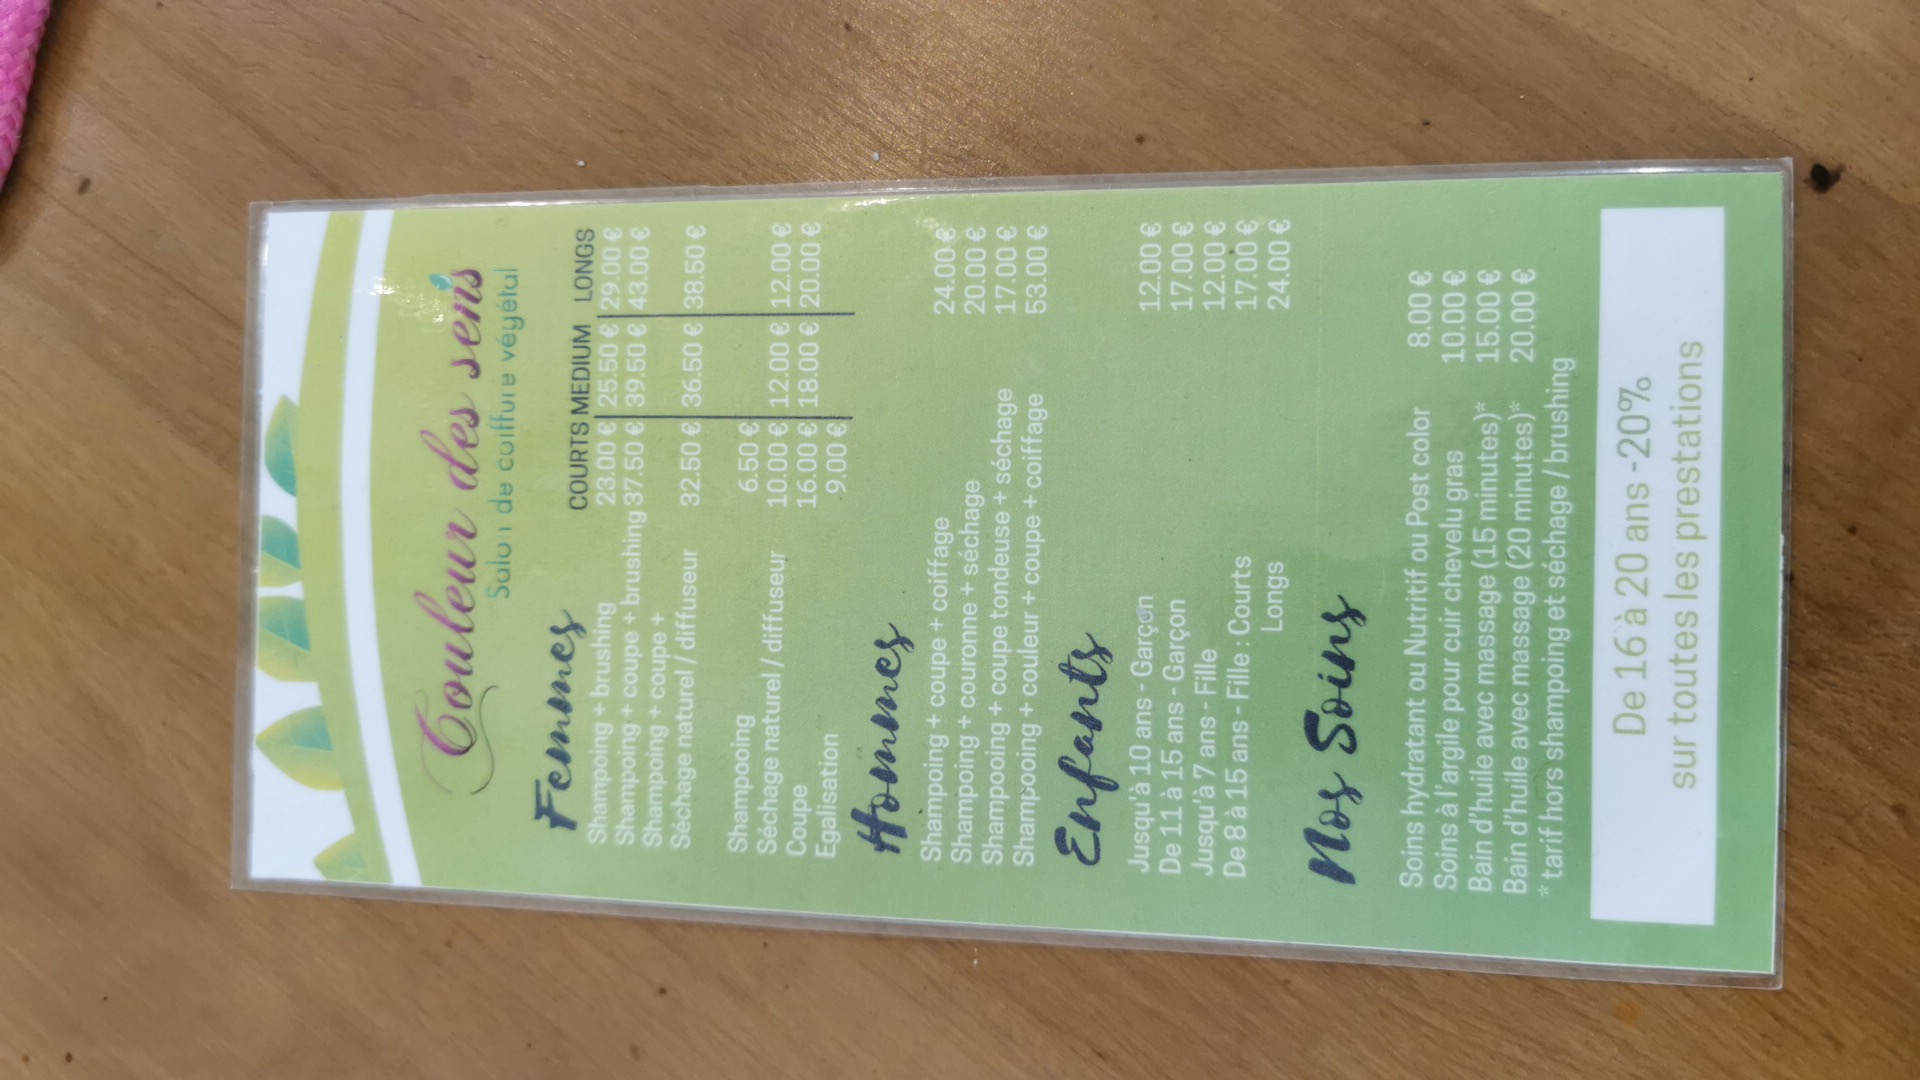 Couleur des sens
Salon de coiffure végétal
Femmes
COURTS MEDIUM LONGS
Shampoing + brushing 23.00 € 25.50 € 29.00 €
Shampoing + coupe + brushing 37.50 € 39.50 € 43.00 €
Shampoing + coupe +
Séchage naturel / diffuseur 32.50 € 36.50 € 38.50 €
Shampooing 6.50 €
Séchage naturel / diffuseur 10.00 € 12.00 € 12.00 €
Coupe 16.00 € 18.00 € 20.00 €
Egalisation 9.00 €
Hommes
Shampoing + coupe + coiffage 24.00 €
Shampoing + couronne + séchage 20.00 €
Shampooing + coupe tondeuse + séchage 17.00 €
Shampooing + couleur + coupe + coiffage 53.00 €
Enfants
Jusqu'à 10 ans - Garçon 12.00 €
De 11 à 15 ans - Garçon 17.00 €
Jusqu'à 7 ans - Fille 12.00 €
De 8 à 15 ans - Fille : Courts 17.00 €
Longs 24.00 €
Nos Soins
Soins hydratant ou Nutritif ou Post color 8.00 €
Soins à l'argile pour cuir chevelu gras 10.00 €
Bain d'huile avec massage (15 minutes)* 15.00 €
Bain d'huile avec massage (20 minutes)* 20.00 €
* tarif hors shampoing et séchage / brushing
De 16 à 20 ans -20%
sur toutes les prestations